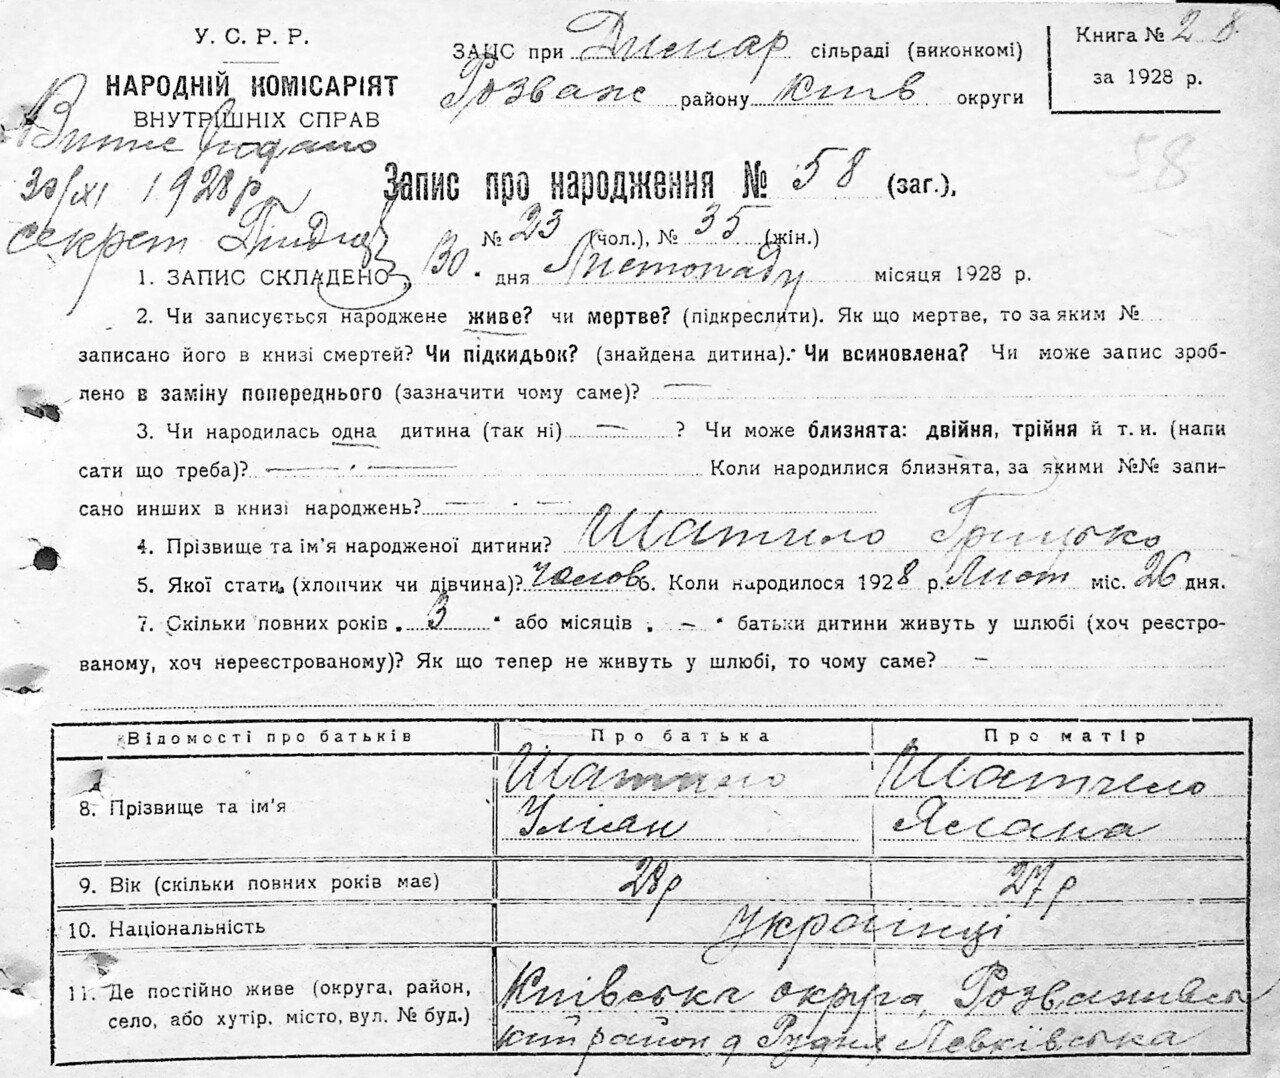 У. С. Р. Р.
НАРОДНІЙ КОМІСАРІЯТ
ВНУТРІШНІХ СПРАВ
ЗАГС при Димар сільраді (виконкомі)
Розваж району Київ округи
Книга № 28
за 1928 р.
58
Випис подано
30/XI 1928 р
секрет
Запис про народження № 58 (заг.),
№ 23 (чол.), № 35 (жін.)
1. ЗАПИС СКЛАДЕНО „30" дня Листопаду місяця 1928 р.
2. Чи записується народжене живе? чи мертве? (підкреслити). Як що мертве, то за яким №
записано його в книзі смертей? Чи підкидьок? (знайдена дитина). Чи всиновлена? Чи може запис зроб-
лено в заміну попереднього (зазначити чому саме)? —
3. Чи народилась одна дитина (так ні) — ? Чи може близнята: двійня, трійня й т. и. (напи
сати що треба)? — Коли народилися близнята, за якими №№ запи-
сано инших в книзі народжень? —
4. Прізвище та ім'я народженої дитини? Шатило Грицько
5. Якої стати (хлопчик чи дівчина)? Чолов 6. Коли народилося 1928 р. Лист міс. 26 дня.
7. Скільки повних років „3" або місяців „—" батьки дитини живуть у шлюбі (хоч реєстро-
ваному, хоч нереєстрованому)? Як що тепер не живуть у шлюбі, то чому саме? —
Відомості про батьків Про батька Про матір
8. Прізвище та ім'я
Шатило Шатчело
Уліан Ялана
9. Вік (скільки повних років має) 28 р 27 р
10. Національність українці
11. Де постійно живе (округа, район,
село, або хутір, місто, вул. № буд.)
Київська округа, Розважівсь
кий район д Рудня Левківська